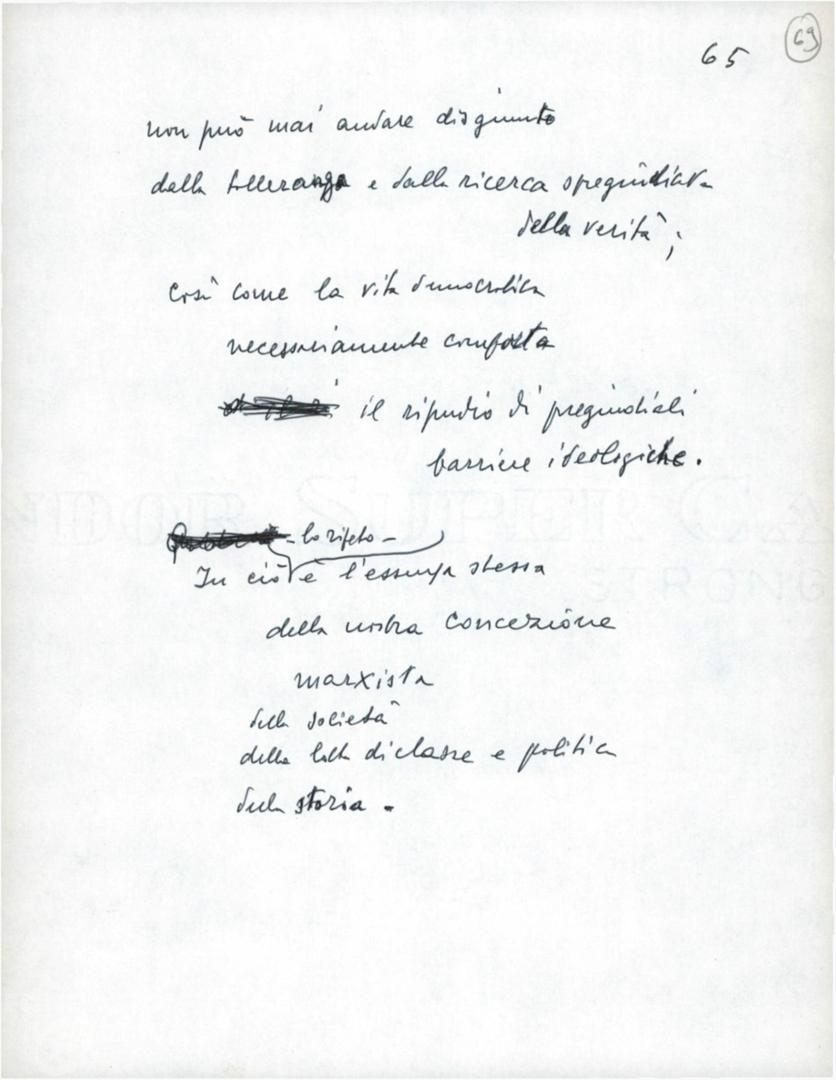 65
69
non può mai andare disgiunto
dalla tolleranza e dalla ricerca spregiudicata
della verità;
così come la vita democratica
necessariamente comporta
il ripudio di pregiudiziali
barriere ideologiche.
- lo ripeto -
In ciò è l'essenza stessa
della nostra concezione
marxista
della società
della lotta di classe e politica
della storia -